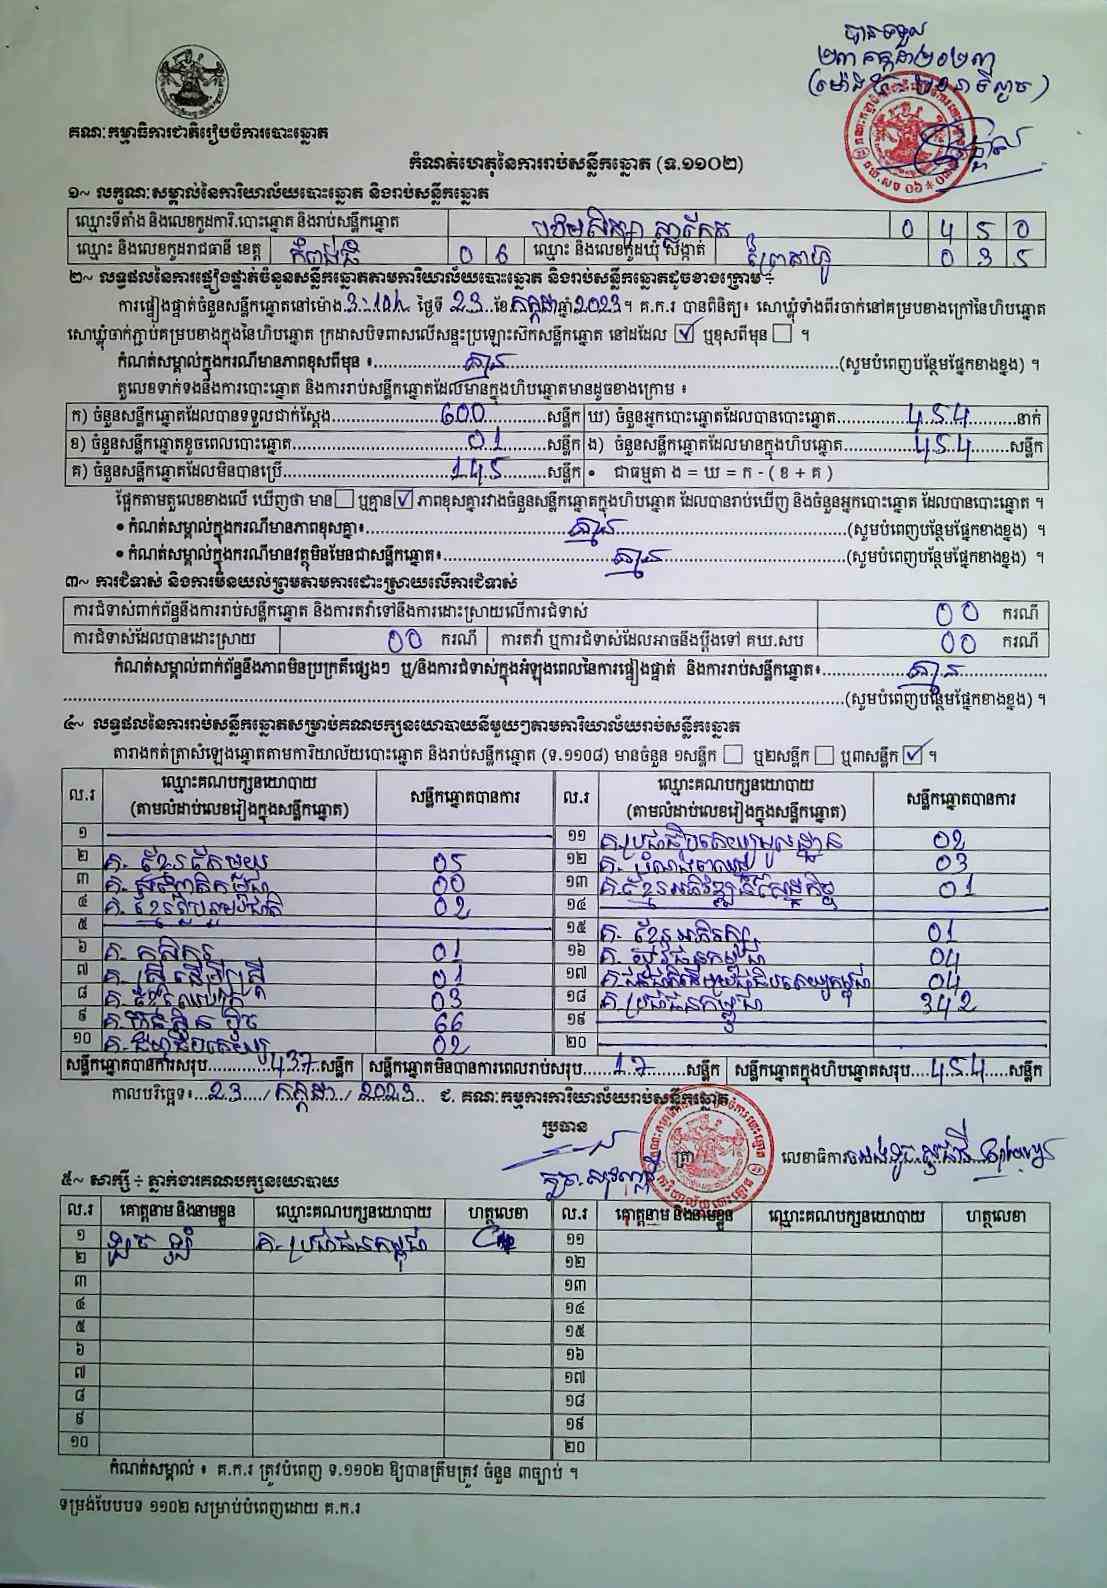 បានទទួល
២៣ កក្កដា ២០២៣
គណៈកម្មាធិការជាតិរៀបចំការបោះឆ្នោត
កំណត់ហេតុនៃការរាប់សន្លឹកឆ្នោត (ទ.១១០២)
១~ លក្ខណៈសម្គាល់នៃការិយាល័យបោះឆ្នោត និងរាប់សន្លឹកឆ្នោត
ឈ្មោះទីតាំង និងលេខកូដការិ.បោះឆ្នោត និងរាប់សន្លឹកឆ្នោត 0 4 5 0
ឈ្មោះ និងលេខកូដរាជធានី ខេត្ត កំពង់ធំ 0 6 ឈ្មោះ និងលេខកូដឃុំ សង្កាត់ 0 3 5
២~ លទ្ធផលនៃការផ្ទៀងផ្ទាត់ចំនួនសន្លឹកឆ្នោតតាមការិយាល័យបោះឆ្នោត និងរាប់សន្លឹកឆ្នោតដូចខាងក្រោម ÷
ការផ្ទៀងផ្ទាត់ចំនួនសន្លឹកឆ្នោតនៅម៉ោង 3:10h ថ្ងៃទី 23 ខែ កក្កដា ឆ្នាំ 2023 ។ គ.ក.រ បានពិនិត្យ៖ សោឃ្លុំទាំងពីរចាក់នៅគម្របខាងក្រៅនៃហិបឆ្នោត
សោឃ្លុំចាក់ភ្ជាប់គម្របខាងក្នុងនៃហិបឆ្នោត ក្រដាសបិទពាសលើសន្ទះប្រឡោះស៊កសន្លឹកឆ្នោត នៅដដែល ☑ ឬខុសពីមុន ☐ ។
កំណត់សម្គាល់ក្នុងករណីមានភាពខុសពីមុន ៖ គ្មាន (សូមបំពេញបន្ថែមផ្នែកខាងខ្នង) ។
តួលេខទាក់ទងនឹងការបោះឆ្នោត និងការរាប់សន្លឹកឆ្នោតដែលមានក្នុងហិបឆ្នោតមានដូចខាងក្រោម ៖
ក) ចំនួនសន្លឹកឆ្នោតដែលបានទទួលជាក់ស្តែង 600 សន្លឹក ឃ) ចំនួនអ្នកបោះឆ្នោតដែលបានបោះឆ្នោត 454 នាក់
ខ) ចំនួនសន្លឹកឆ្នោតខូចពេលបោះឆ្នោត 01 សន្លឹក ង) ចំនួនសន្លឹកឆ្នោតដែលមានក្នុងហិបឆ្នោត 454 សន្លឹក
គ) ចំនួនសន្លឹកឆ្នោតដែលមិនបានប្រើ 145 សន្លឹក • ជាធម្មតា ង = ឃ = ក - ( ខ + គ )
ផ្អែកតាមតួលេខខាងលើ ឃើញថា មាន ☐ ឬគ្មាន ☑ ភាពខុសគ្នារវាងចំនួនសន្លឹកឆ្នោតក្នុងហិបឆ្នោត ដែលបានរាប់ឃើញ និងចំនួនអ្នកបោះឆ្នោត ដែលបានបោះឆ្នោត ។
• កំណត់សម្គាល់ក្នុងករណីមានភាពខុសគ្នា៖ គ្មាន (សូមបំពេញបន្ថែមផ្នែកខាងខ្នង) ។
• កំណត់សម្គាល់ក្នុងករណីមានវត្ថុមិនមែនជាសន្លឹកឆ្នោត៖ គ្មាន (សូមបំពេញបន្ថែមផ្នែកខាងខ្នង) ។
៣~ ការជំទាស់ និងការមិនយល់ព្រមតាមការដោះស្រាយលើការជំទាស់
ការជំទាស់ពាក់ព័ន្ធនឹងការរាប់សន្លឹកឆ្នោត និងការតវ៉ាទៅនឹងការដោះស្រាយលើការជំទាស់ 00 ករណី
ការជំទាស់ដែលបានដោះស្រាយ 00 ករណី ការតវ៉ា ឬការជំទាស់ដែលអាចនឹងប្តឹងទៅ គឃ.សប 00 ករណី
កំណត់សម្គាល់ពាក់ព័ន្ធនឹងភាពមិនប្រក្រតីផ្សេងៗ ឬ/និងការជំទាស់ក្នុងអំឡុងពេលនៃការផ្ទៀងផ្ទាត់ និងការរាប់សន្លឹកឆ្នោត៖ គ្មាន
(សូមបំពេញបន្ថែមផ្នែកខាងខ្នង) ។
៤~ លទ្ធផលនៃការរាប់សន្លឹកឆ្នោតសម្រាប់គណបក្សនយោបាយនីមួយៗតាមការិយាល័យរាប់សន្លឹកឆ្នោត
តារាងកត់ត្រាសំឡេងឆ្នោតតាមការិយាល័យបោះឆ្នោត និងរាប់សន្លឹកឆ្នោត (ទ.១១០៨) មានចំនួន ១សន្លឹក ☐ ឬ២សន្លឹក ☐ ឬ៣សន្លឹក ☑ ។
ល.រ ឈ្មោះគណបក្សនយោបាយ (តាមលំដាប់លេខរៀងក្នុងសន្លឹកឆ្នោត) សន្លឹកឆ្នោតបានការ ល.រ ឈ្មោះគណបក្សនយោបាយ (តាមលំដាប់លេខរៀងក្នុងសន្លឹកឆ្នោត) សន្លឹកឆ្នោតបានការ
១ ១១ គ.ប្រជាធិបតេយ្យមូលដ្ឋាន 02
២ គ. ខ្មែរតែមួយ 05 ១២ 03
៣ 00 ១៣ គ.ខ្មែរអភិវឌ្ឍន៍សេដ្ឋកិច្ច 01
៤ គ. ខ្មែររួបរួមជាតិ 02 ១៤
៥ ១៥ គ. ខ្មែរអភិរក្ស 01
៦ គ. កសិករ 01 ១៦ គ. យុវជនកម្ពុជា 04
៧ គ. ស្ត្រីដើម្បីស្ត្រី 01 ១៧ 04
៨ 03 ១៨ គ.ប្រជាជនកម្ពុជា 342
៩ គ.ហ៊្វុនស៊ិនប៉ិច 66 ១៩
១០ គ. 02 ២០
សន្លឹកឆ្នោតបានការសរុប 437 សន្លឹក សន្លឹកឆ្នោតមិនបានការពេលរាប់សរុប 17 សន្លឹក សន្លឹកឆ្នោតក្នុងហិបឆ្នោតសរុប 454 សន្លឹក
កាលបរិច្ឆេទ៖ 23 / កក្កដា / 2023 ជ. គណៈកម្មការការិយាល័យរាប់សន្លឹកឆ្នោត
ប្រធាន
ត្រា លេខាធិការ
៥~ សាក្សី ÷ ភ្នាក់ងារគណបក្សនយោបាយ
ល.រ គោត្តនាម និងនាមខ្លួន ឈ្មោះគណបក្សនយោបាយ ហត្ថលេខា ល.រ គោត្តនាម និងនាមខ្លួន ឈ្មោះគណបក្សនយោបាយ ហត្ថលេខា
១ គ. ប្រជាជនកម្ពុជា ១១
២ ១២
៣ ១៣
៤ ១៤
៥ ១៥
៦ ១៦
៧ ១៧
៨ ១៨
៩ ១៩
១០ ២០
កំណត់សម្គាល់ ៖ គ.ក.រ ត្រូវបំពេញ ទ.១១០២ ឱ្យបានត្រឹមត្រូវ ចំនួន ៣ច្បាប់ ។
ទម្រង់បែបបទ ១១០២ សម្រាប់បំពេញដោយ គ.ក.រ